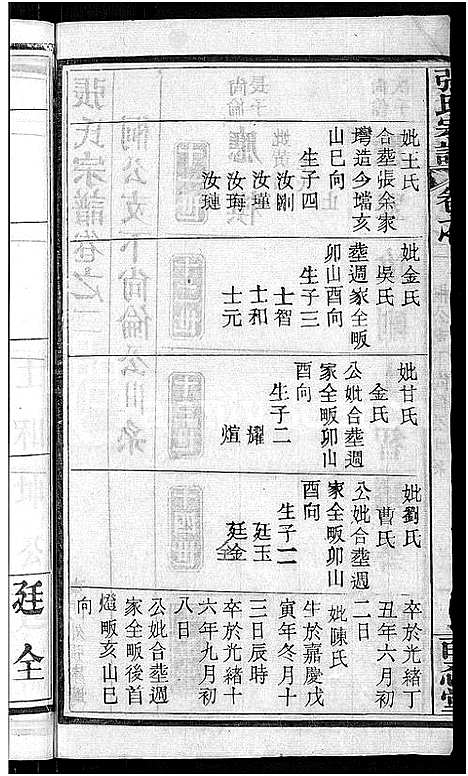 張氏宗譜
妣王氏
合塟張余家
塆造少壋亥
山巳向
生子四
汝剛
汝瑾
汝珻
汝璉
妣金氏
吳氏
塟週家全畈
卯山酉向
生子三
士智
士和
士元
妣甘氏
金氏
公妣合塟週
家全畈卯山
酉向
生子二
耀
煊
妣劉氏
曹氏
公妣合塟週
家全畈卯山
酉向
生子二
廷玉
廷金
全
卒於光緒丁
丑年六月初
二日
妣陳氏
生於嘉慶戊
寅年冬月十
三日辰時
卒於光緒十
六年九月初
八日
公妣合塟週
家全畈後首
亥山巳
向
廷全